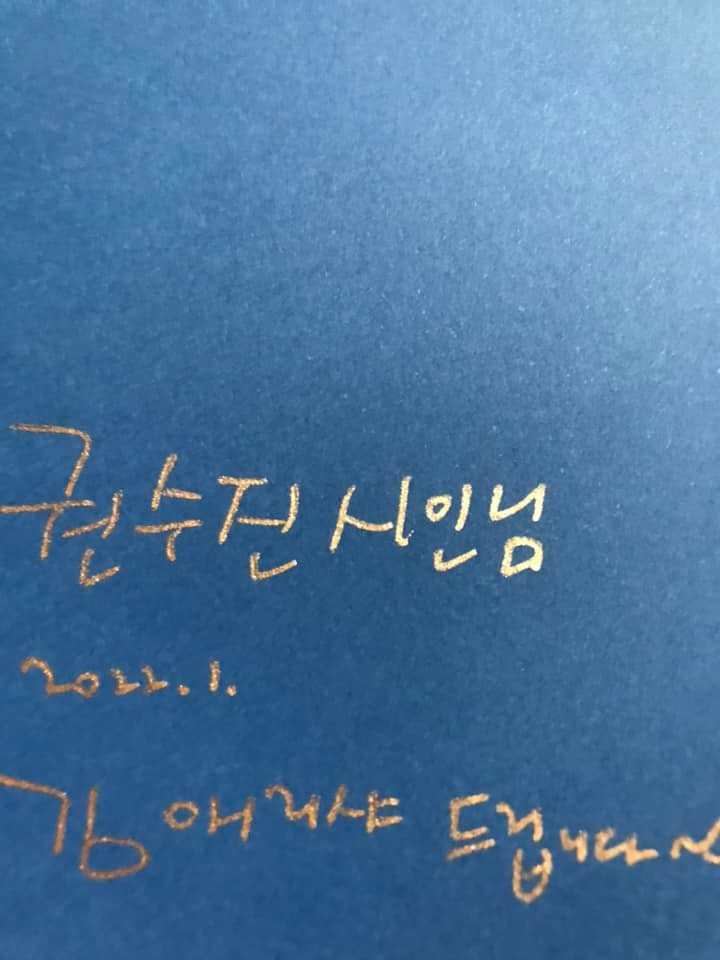 권수진 시인님
2022.1.
김애리샤 드립니다~